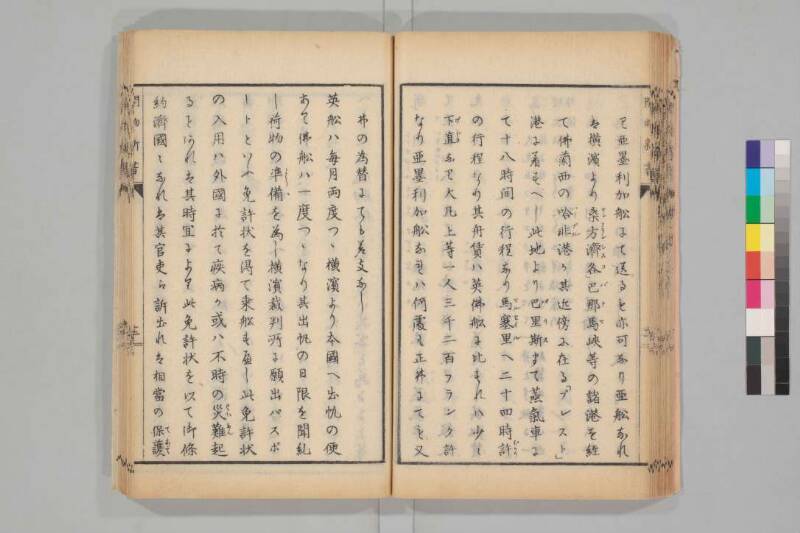 て亜墨利加船にて送るも亦可なり亜船なれ
ば横濱より桑方濟谷巴那馬峽等の諸港を經
て佛蘭西の哈非港か其近傍に在る「ブレスト」
港に着すべし此地より巴里斯まで蒸氣車に
て十八時間の行程なり馬塞里へ二十四時許
の行程なり其舟賃ハ英佛船に比すれハ少し
下直にて大凡上等一人三千二百フランク許
なり亜墨利加船なれハ何處も正丼にても又
一丼の為替にても差支なし
英船ハ毎月両度つゝ横濱より本國へ出帆の便
あり佛船ハ一度つゝなり其出帆の日限を聞糺
し荷物の準備を為し横濱裁判所に願出パスポ
ートといへる免許状を得て乗船すべし此免許状
の入用ハ外國に於て疾病か或ハ不時の災難起
るときハ其時宜により此免許状を以て御條
約濟國なれは其官吏に訴出れは相當の保護